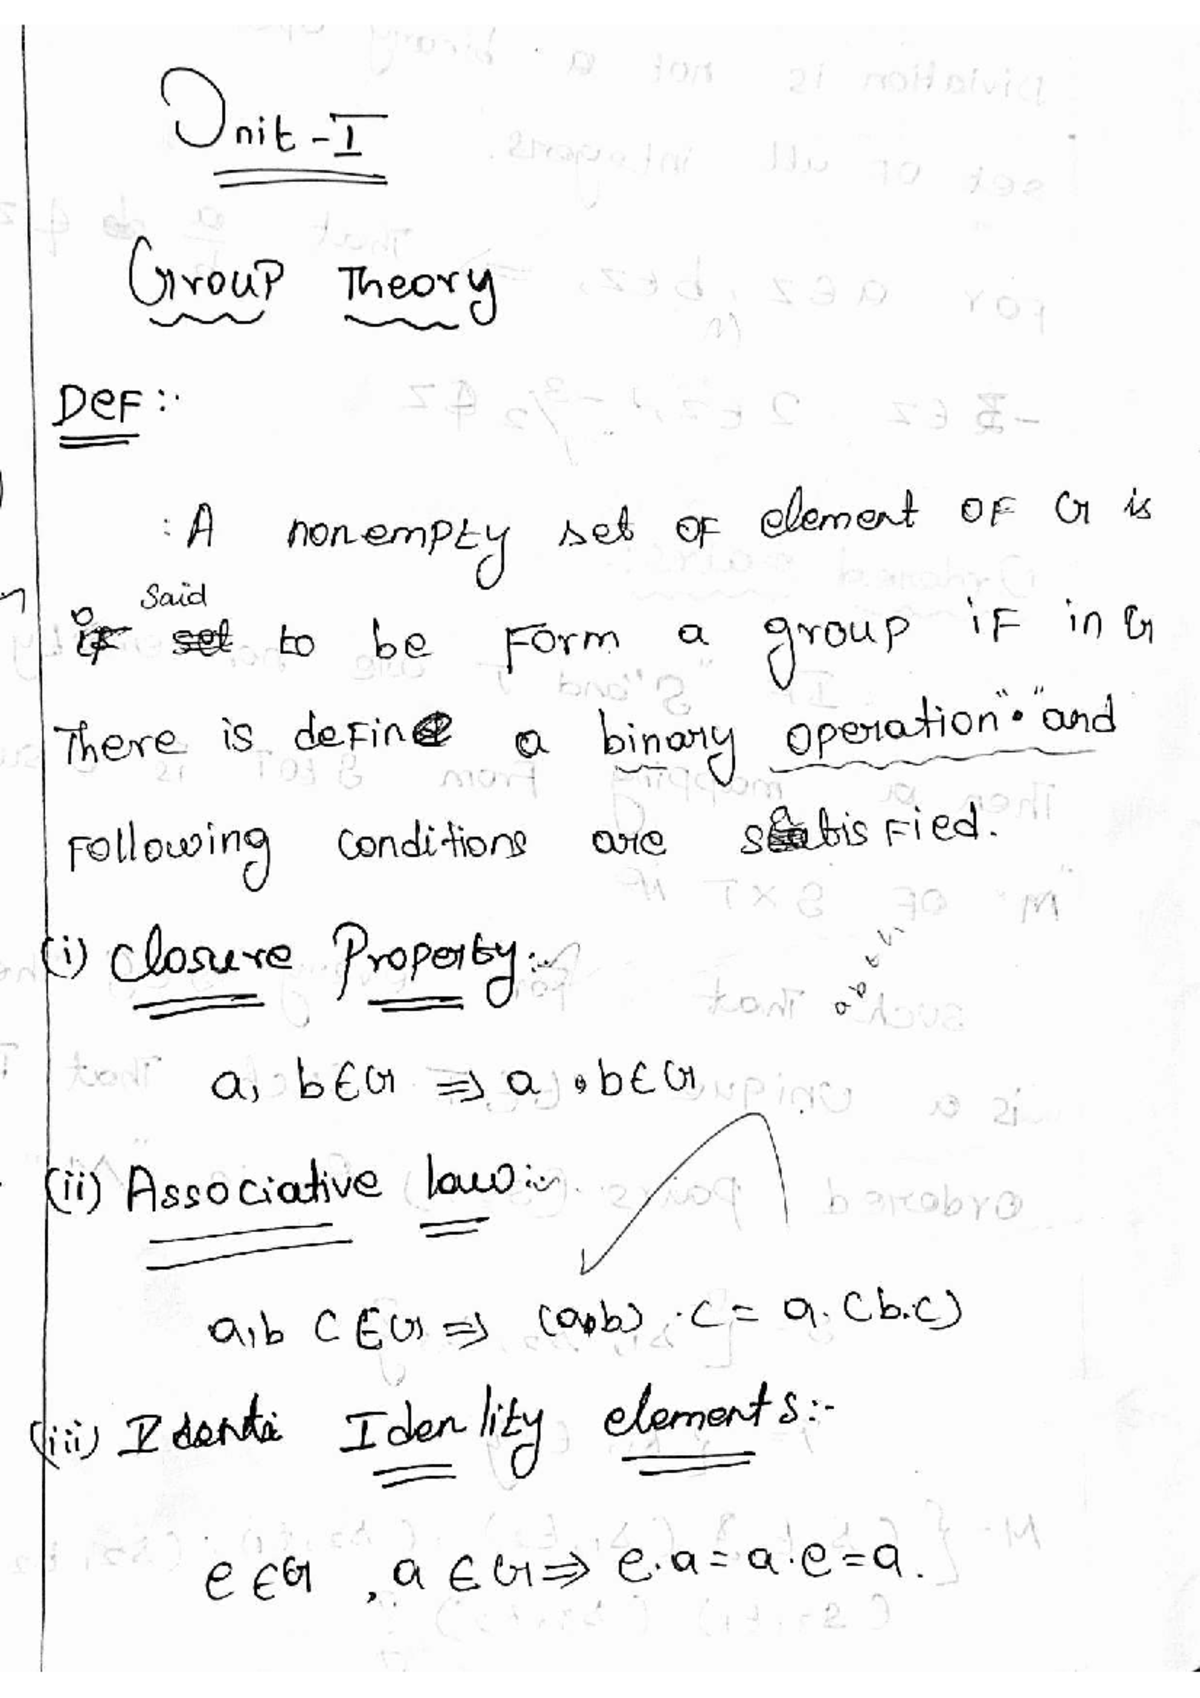 Unit - I
Group Theory
Def :-
: A nonempty set of element of G is
if set said to be form a group if in G
There is define a binary operation "." and
following conditions are satisfied.
(i) Closure Property :-
a, b ∈ G ⇒ a . b ∈ G
(ii) Associative law :-
a, b c ∈ G ⇒ (a.b) . c = a. (b.c)
(iii) Identi Identity elements :-
e ∈ G , a ∈ G ⇒ e . a = a . e = a.